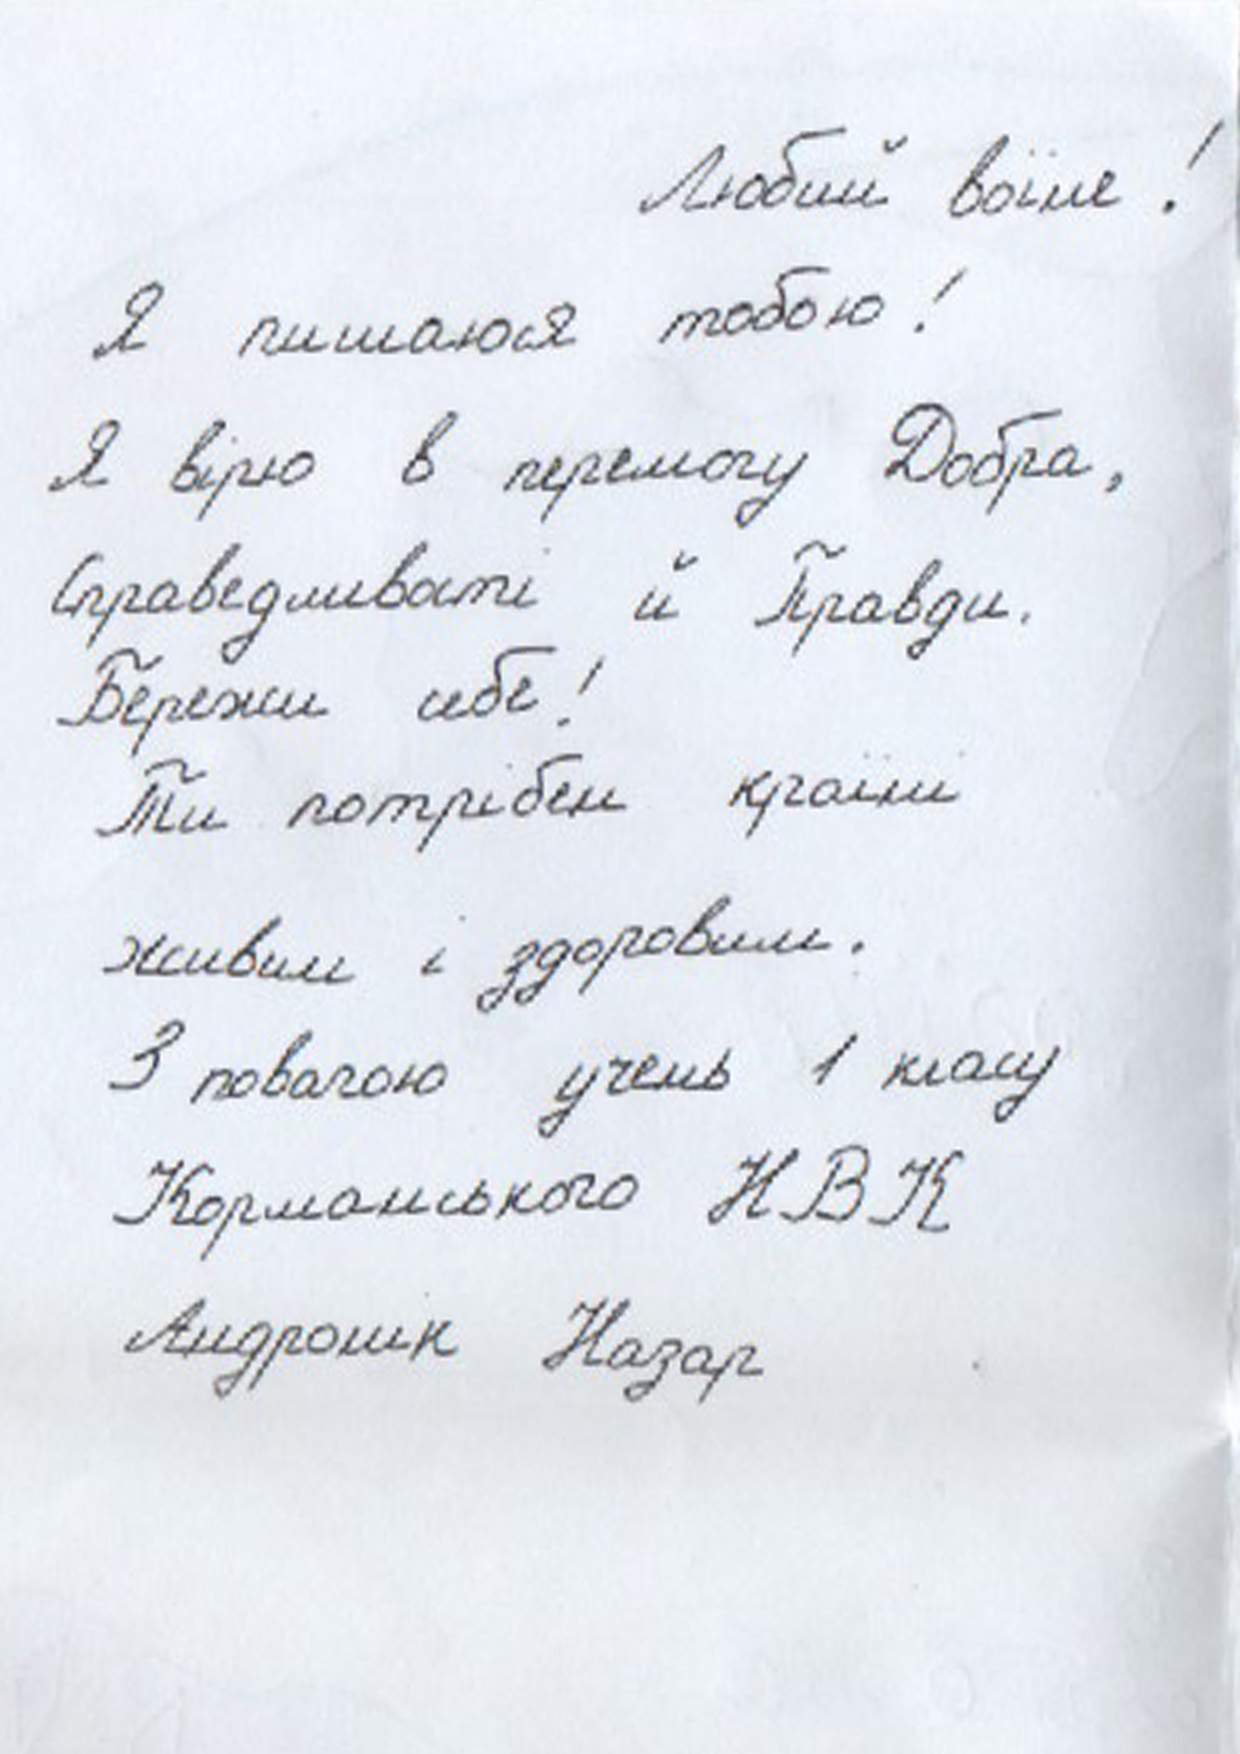 Любий воїне!
Я пишаюся тобою!
Я вірю в перемогу Добра,
Справедливості й Правди.
Бережи себе!
Ти потрібен країні
живим і здоровим.
З повагою учень 1 класу
Корманського НВК
Андрошік Назар